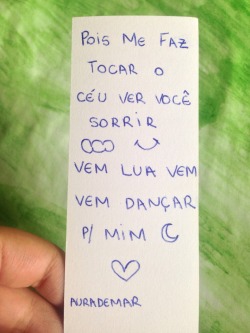 Pois Me FAZ
TOCAR O
CÉU VER VOCÊ
SORRIR
VEM LUA VEM
VEM DANÇAR
P/ MIM
AURADEMAR